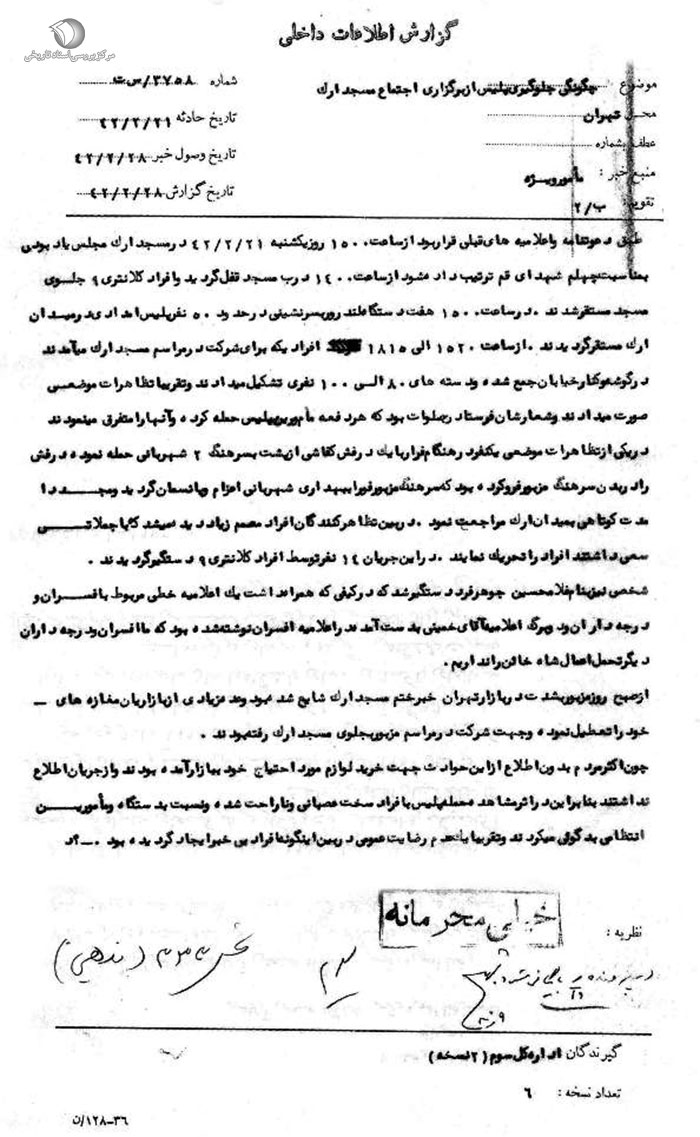 مرکز بررسی اسناد تاریخی
گزارش اطلاعات داخلی
موضوع چگونگی جلوگیری پلیس از برگزاری اجتماع مسجد ارك
شماره ۳۷۵۸/س ت
محل تهران
تاریخ حادثه ۴۲/۲/۲۱
عطف بشماره
تاریخ وصول خبر ۴۲/۲/۲۸
منبع خبر : مأمور ویژه
تاریخ گزارش ۴۲/۲/۲۸
تقویم ب/۲
طبق دعوتنامه واعلامیه های قبلی قرار بود از ساعت ۱۵۰۰ روز یکشنبه ۴۲/۲/۲۱ در مسجد ارك مجلس یاد بودی
بمناسبت چهلم شهدای قم ترتیب داده شود از ساعت ۱۴۰۰ درب مسجد قفل گردید وافراد کلانتری ۹ جلوی
مسجد مستقر شدند . در ساعت ۱۵۰۰ هفت دستگاه لندرور سرنشینی در حدود ۵۰ نفر پلیس امدادی در میدان
ارك مستقر گردیدند . از ساعت ۱۵۲۰ الی ۱۸۱۵ افرادیکه برای شرکت در مراسم مسجد ارك میآمدند
در گوشه وکنار خیابان جمع شده ودسته های ۸۰ الی ۱۰۰ نفری تشکیل میدادند وتقریبا تظاهرات موضعی
صورت میدادند وشعارشان فرستادن صلوات بود که هر دفعه مأمورین پلیس حمله کرده وآنها را متفرق مینمودند
در یکی از تظاهرات موضعی یکنفر در هنگام فرار با یك درفش کفاشی از پشت بسرهنگ ۲ شهربانی حمله نموده درفش
را در بدن سرهنگ مزبور فرو کرده بود که سرهنگ مزبور فورا ببهداری شهربانی اعزام وپانسمان گردید ومجددا
مدت کوتاهی بمیدان ارك مراجعت نمود . در بین تظاهرکنندگان افراد معمم زیاد دیده میشد که با جملاتی
سعی داشتند افراد را تحریك نمایند . در این جریان ۱۴ نفر توسط افراد کلانتری ۹ دستگیر گردیدند .
شخصی نیز بنام غلامحسین جوهرفرد دستگیر شد که در کیفی که همراه داشت یك اعلامیه خطی مربوط بافسران و
درجه داران و دو برگ اعلامیه آقای خمینی بدست آمد در اعلامیه افسران نوشته شده بود که ما افسران ودرجه داران
دیگر تحمل اعمال شاه خائن را نداریم .
از صبح روز مزبور بشدت در بازار تهران خبر ختم مسجد ارك شایع شده بود وعده زیادی از بازاریان مغازه های
خود را تعطیل نموده وجهت شرکت در مراسم مزبور بجلوی مسجد ارك رفته بودند .
چون اکثر مردم بدون اطلاع از این حوادث جهت خرید لوازم مورد احتیاج خود ببازار آمده بودند واز جریان اطلاع
نداشتند بنابراین در اثر مشاهده حمله پلیس بافراد سخت عصبانی وناراحت شده ونسبت بدستگاه ومأمورین
انتظامی بدگوئی میکردند وتقریبا یك عدم رضایت عمومی در بین اینگونه افراد بی خبر ایجاد گردیده بود .
خیلی محرمانه
نظریه :
بخش ۳۳۴ (مذهبی)
گیرندگان اداره کل سوم (۲ نسخه)
تعداد نسخه : ۶
۳۶-۱۲۸/ن